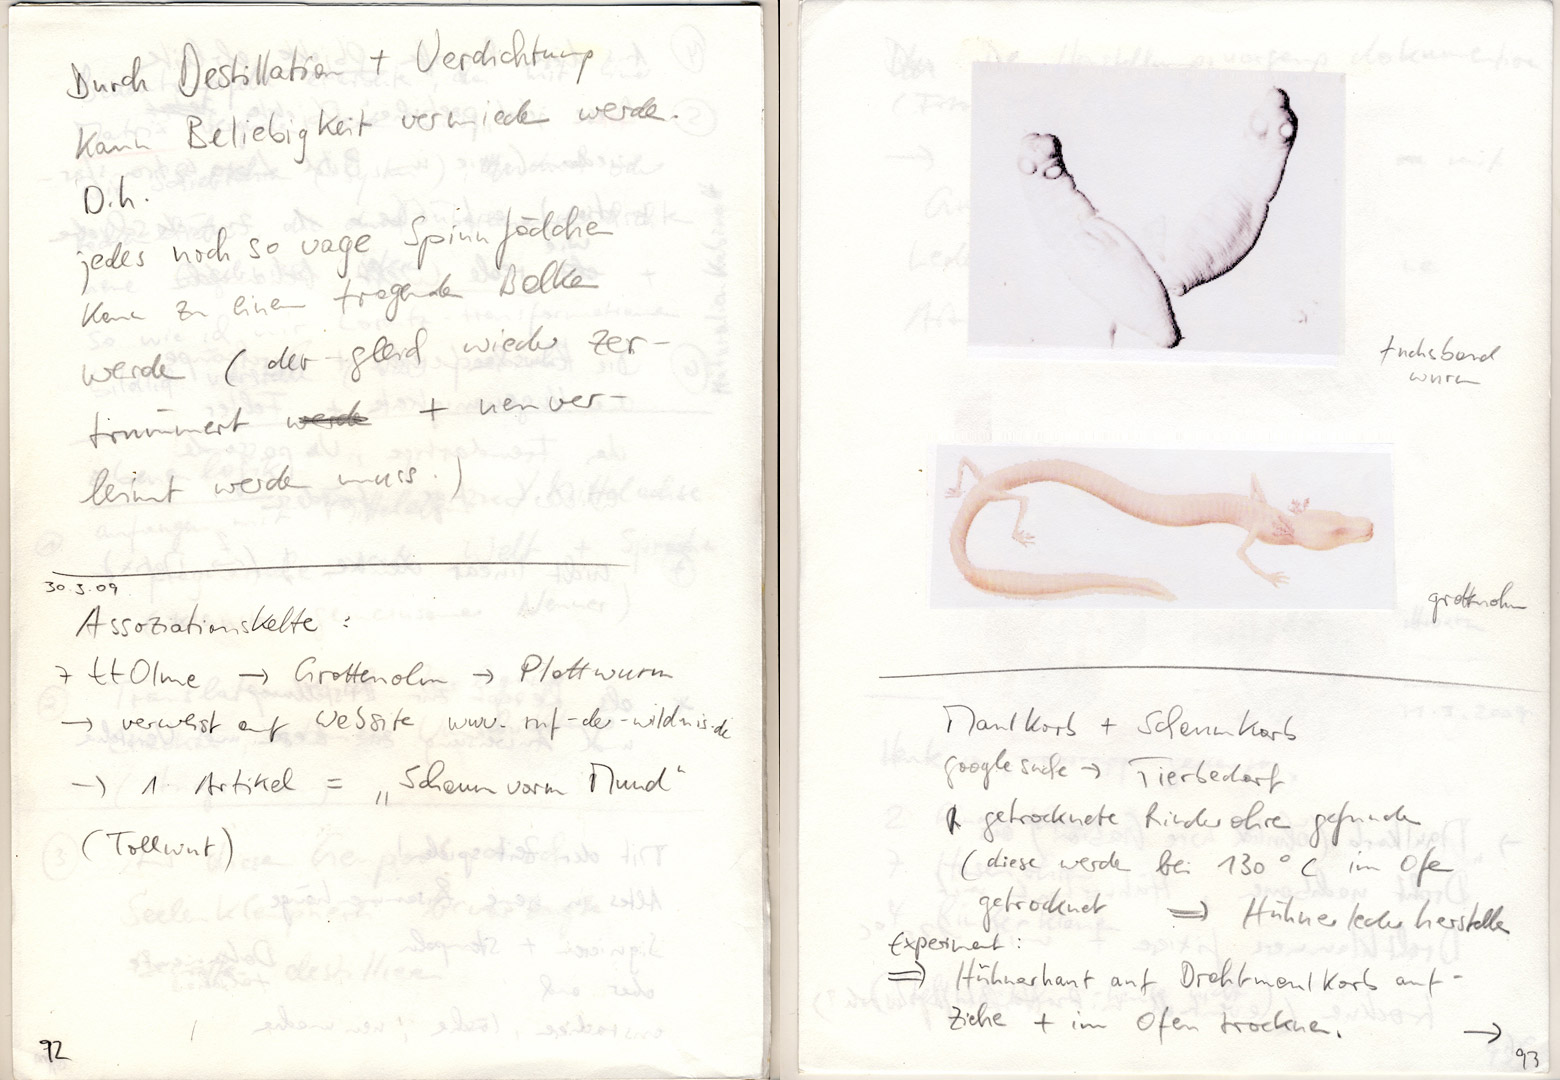 Durch Destillation + Verdichtung
kann Beliebigkeit vermieden werden.
D.h.
jedes noch so vage Spinnfädchen
kann zu einem tragenden Balken
werden (der gleich wieder zer-
trümmert werden + neu ver-
leimt werden muss.)
30.3.09
Assoziationskette:
Olme → Grottenolm → Plattwurm
→ verweist auf website www.ruf-der-wildnis.de
→ 1. Artikel = „Schaum vorm Mund“
(Tollwut)
92
fuchsband
wurm
grottenolm
Maulkorb + Schaumkorb
google suche → Tierbedarf
getrocknete Rinderohren gefunden
(diese werden bei 130° C im Ofen
getrocknet ⇒ Hühnerleder herstellen
Experiment:
⇒ Hühnerhaut auf Drahtmaulkorb auf-
ziehen + im Ofen trocknen. →
93